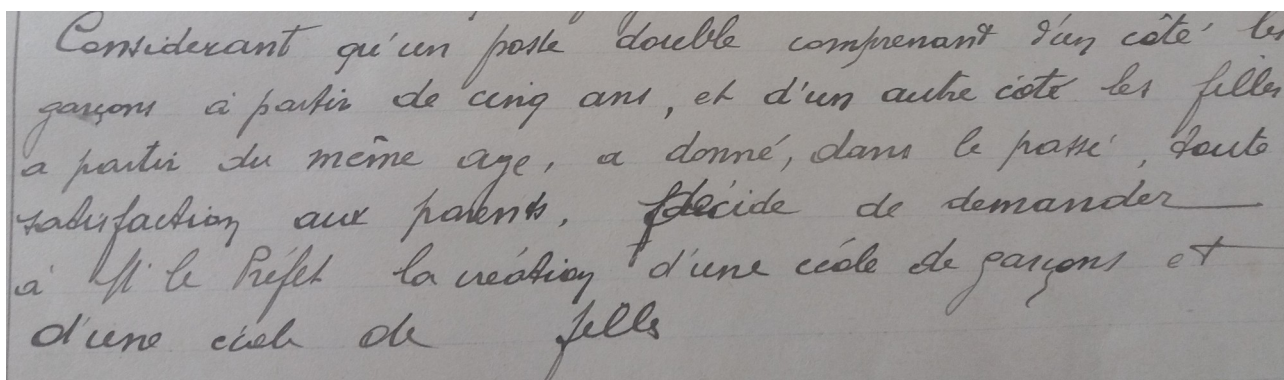 Considerant qu'un poste double comprenant d'un côté les
garçons à partir de cinq ans, et d'un autre coté les filles
a partir du même age, a donné, dans le passé, toute
satisfaction aux parents, décide de demander
à M. le Préfet la création d'une école de garçons et
d'une école de filles